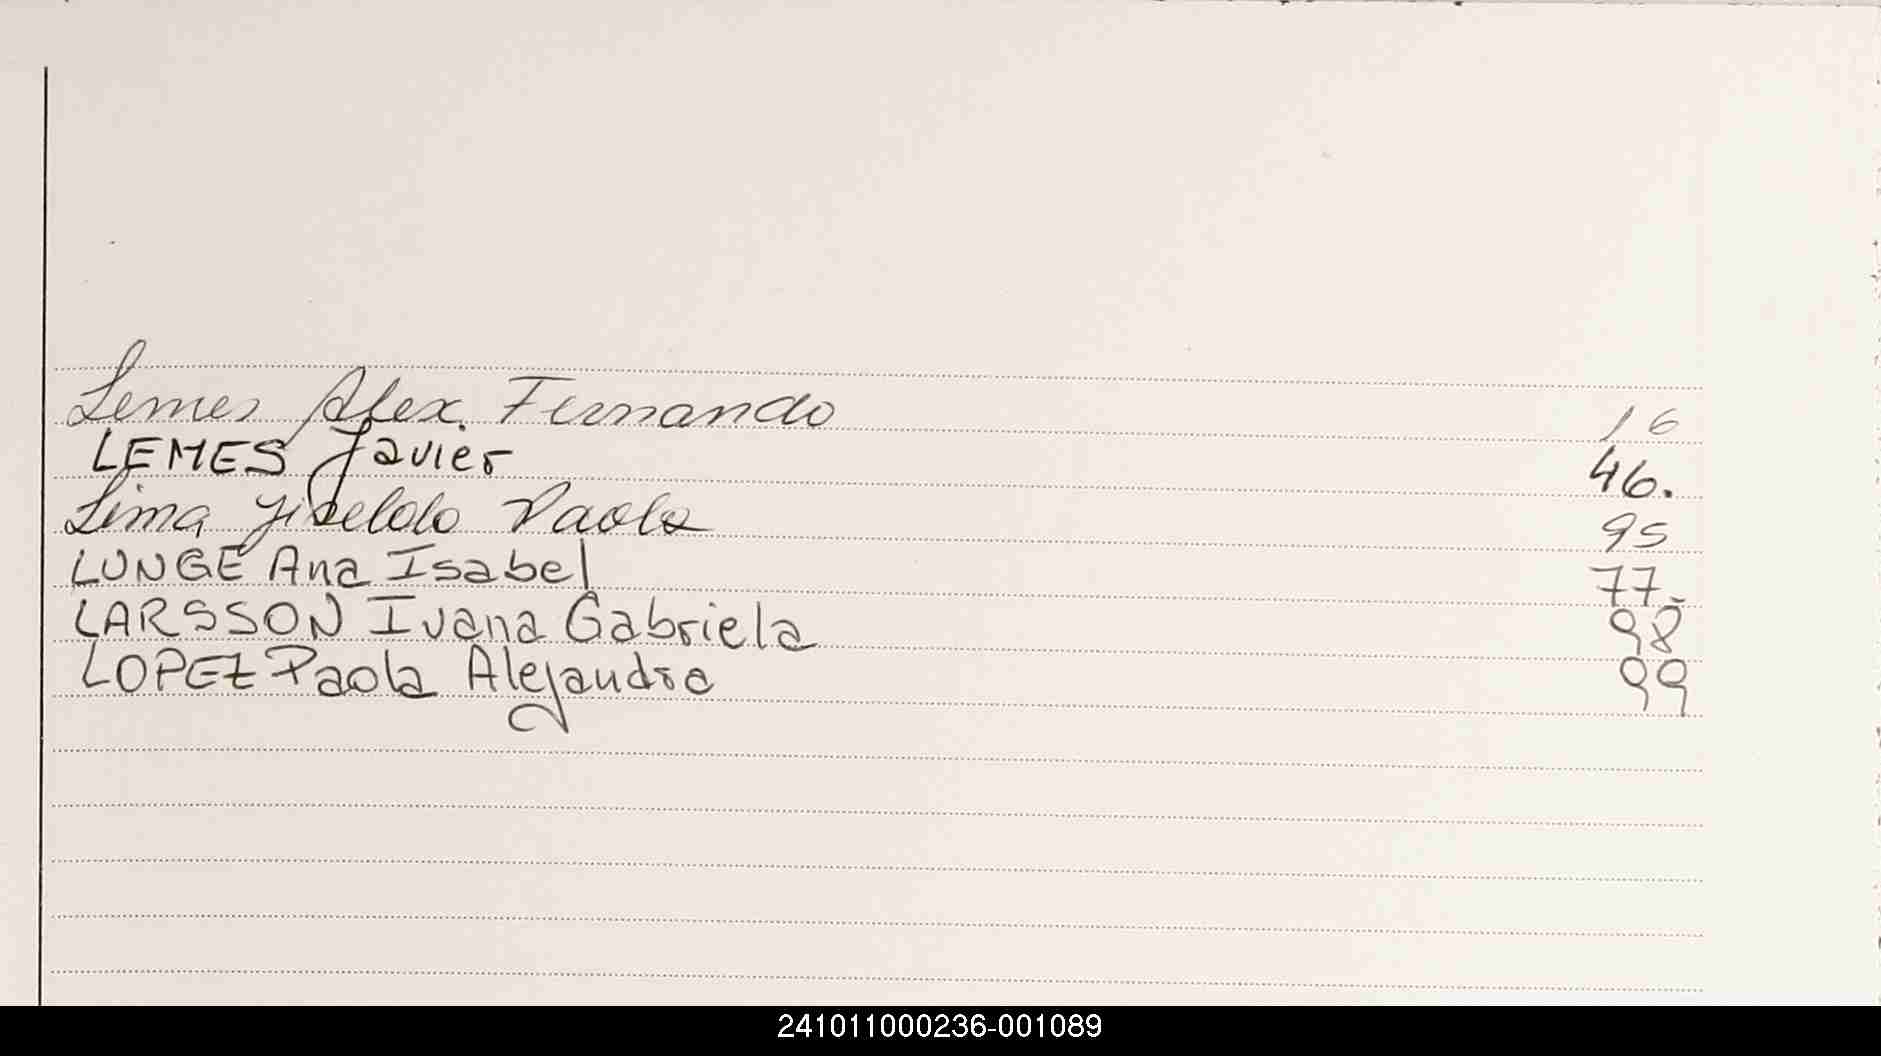 Lemes Alex Fernando 16
LEMES Javier 46.
Lima Paola 95
LUNGE Ana Isabel 77.
LARSSON Ivana Gabriela 98
LOPEZ Paola Alejandra 99
241011000236-001089